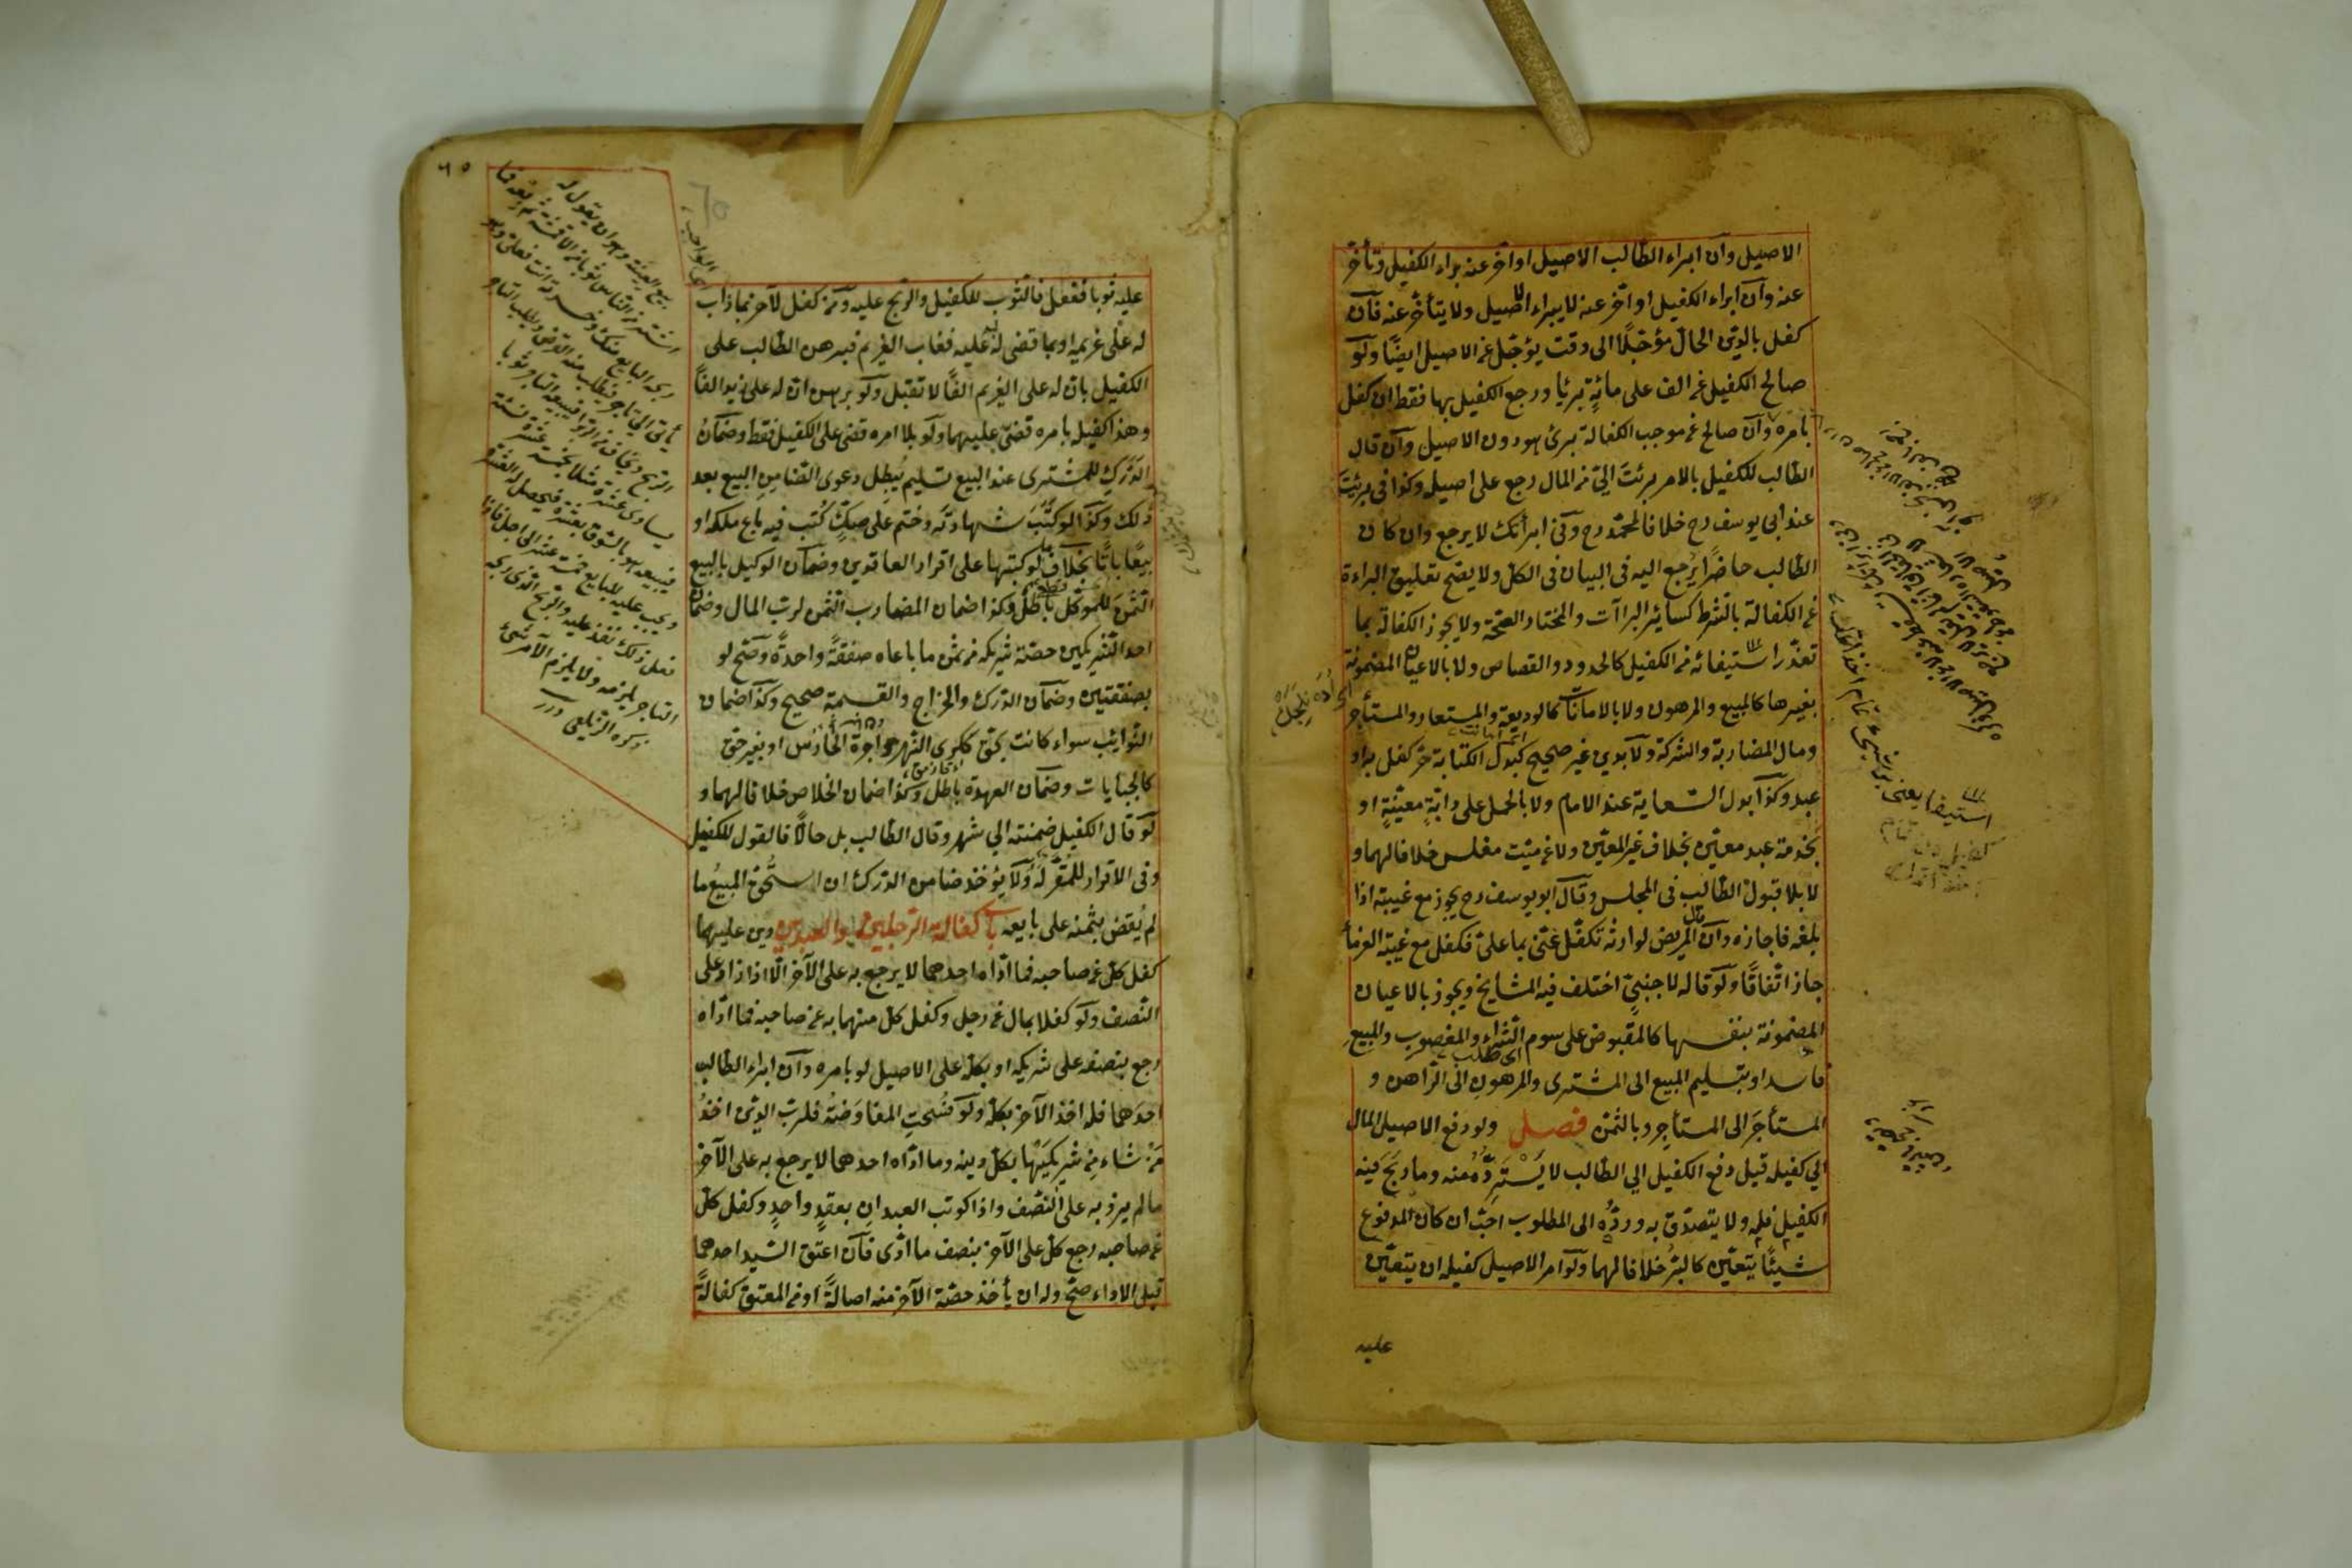 الاصيل وان ابراء الطالب الاصيل او اخر عنه براء الكفيل وتأخر
عنه وان ابراء الكفيل او اخر عنه لا يبراء الاصيل ولا يتأخر عنه فان
كفل بالدين الحال مؤجلا الى وقت يؤجل عن الاصيل ايضا ولو
صالح الكفيل عن الف على مائة برئا ورجع الكفيل بها فقط ان كفل
بامره وان صالح عن موجب الكفالة برئ هو دون الاصيل وان قال
الطالب للكفيل بالامر برئت الي من المال رجع على اصيله وكذا في برئت
عند ابي يوسف رح خلافا لمحمد رح وفي ابرأتك لا يرجع وان كان
الطالب حاضرا يرجع اليه في البيان في الكل ولا يصح تعليق البراءة
عن الكفالة بالشرط كسائر البراآت والمختار الصحة ولا يجوز الكفالة بما
تعذر استيفائه من الكفيل كالحدود والقصاص ولا بالاعيان المضمونة
بغيرها كالمبيع والمرهون ولا بالامانات كالوديعة والمستعار والمستأجر
ومال المضاربة والشركة ولا بدين غير صحيح كبدل الكتابة حر كفل به او
عبد وكذا بدل السعاية عند الامام ولا بالحمل على دابة معينة او
بخدمة عبد معين بخلاف غير المعين ولا عن ميت مفلس خلافا لهما و
لا بلا قبول الطالب في المجلس وقال ابو يوسف رح يجوز مع غيبته اذا
بلغه فاجازه وان قال المريض لوارثه تكفل عني بما علي فكفل مع غيبة الغرماء
جاز اتفاقا ولو قاله لاجنبي اختلف فيه المشايخ ويجوز بالاعيان
المضمونة بنفسها كالمقبوض على سوم الشراء والمغصوب والمبيع
فاسدا وبتسليم المبيع الى المشترى والمرهون الى الراهن و
المستأجر الى المستأجر وبالثمن فصل ولو دفع الاصيل المال
الي كفيله قبل دفع الكفيل الي الطالب لا يسترده منه وما ربح فيه
الكفيل فله ولا يتصدق به ورده الى المطلوب احب ان كان المدفوع
شيئا يتعين كالبر خلافا لهما ولو امر الاصيل كفيله ان يتعين
عليه
٦٥
65
عليه ثوبا ففعل فالثوب للكفيل والربح عليه ومن كفل لآخر بما ذاب
له على غريمه او بما قضى له عليه فغاب الغريم فبرهن الطالب على
الكفيل بان له على الغريم الفا لا تقبل ولو برهن ان له على زيد الفا
وهذا كفيله بامره قضى عليهما ولو بلا امره قضى على الكفيل فقط وضمان
الدرك للمشترى عند البيع تسليم يبطل دعوى الضامن المبيع بعد
ذلك وكذا لو كتب شهادته وختم على صك كتب فيه باع ملكه او
بيعا باتا بخلاف ما لو كتبها على اقرار العاقدين وضمان الوكيل بالبيع
الثمن للموكل باطل وكذا ضمان المضارب الثمن لرب المال وضمان
احد الشريكين حصة شريكه من ثمن ما باعاه صفقة واحدة وصح لو
بصفقتين وضمان الدرك والخراج والقسمة صحيح وكذا ضمان
النوائب سواء كانت بحق ككرى النهر واجرة الحارس او بغير حق
كالجبايات وضمان العهدة باطل وكذا ضمان الخلاص خلافا لهما و
لو قال الكفيل ضمنته الي شهر وقال الطالب بل حالا فالقول للكفيل
وفي الاقرار للمقر له ولا يؤخذ ضامن الدرك ان استحق المبيع ما
لم يقض بثمنه على بايعه باب كفالة الرجلين والعبدين دين عليهما
كفل كل عن صاحبه فما اداه احدهما لا يرجع به على الآخر الا اذا زاد على
النصف ولو كفلا بمال عن رجل وكفل كل منهما به عن صاحبه فما اداه
رجع بنصفه على شريكه او بكله على الاصيل لو بامره وان ابراء الطالب
احدهما فله اخذ الآخر بكله ولو فسخت المفاوضة فلرب الدين اخذ
من شاء من شريكيها بكل دينه وما اداه احدهما لا يرجع به على الآخر
ما لم يزد به على النصف واذا كوتب العبدان بعقد واحد وكفل كل
عن صاحبه رجع كل على الآخر بنصف ما ادى فان اعتق السيد احدهما
قبل الاداء صح وله ان يأخذ حصة الآخر منه اصالة او من المعتق كفالة
بيع العينة وهو ان يقول له
اشتر من الناس ثوبا من الاقمشة ثم بعه فما
ربحه البايع منك وخسرته انت فعلي وهو
يأتي الى تاجر فيطلب منه القرض ويطلب التاجر
الربح ويخاف من الربوا فيبيعه التاجر ثوبا
يساوى عشرة مثلا بخمسة عشرة نسئة
فيبيعه هو بالسوق بعشرة فيحصل له العشرة
ويجب عليه للبايع خمسة عشر الى اجل فاذا
فعل ذلك نفذ عليه والربح الذى ربحه
التاجر يلزمه ولا يلزم الآمر شئ
ذكره الزيلعي درر